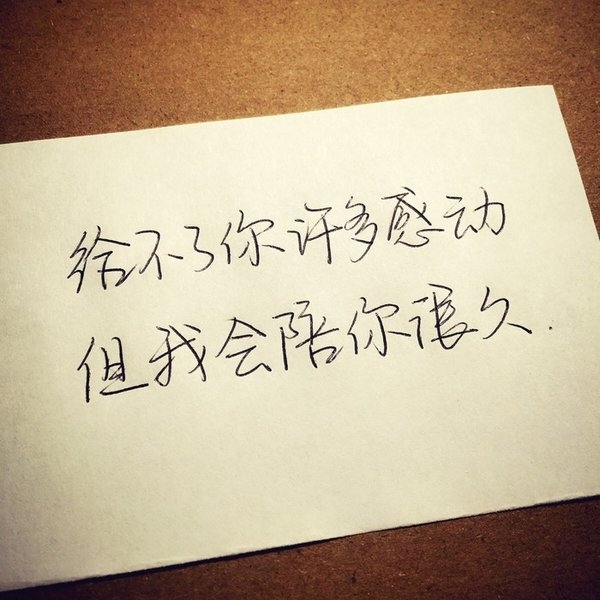 给不了你许多感动
但我会陪你很久.